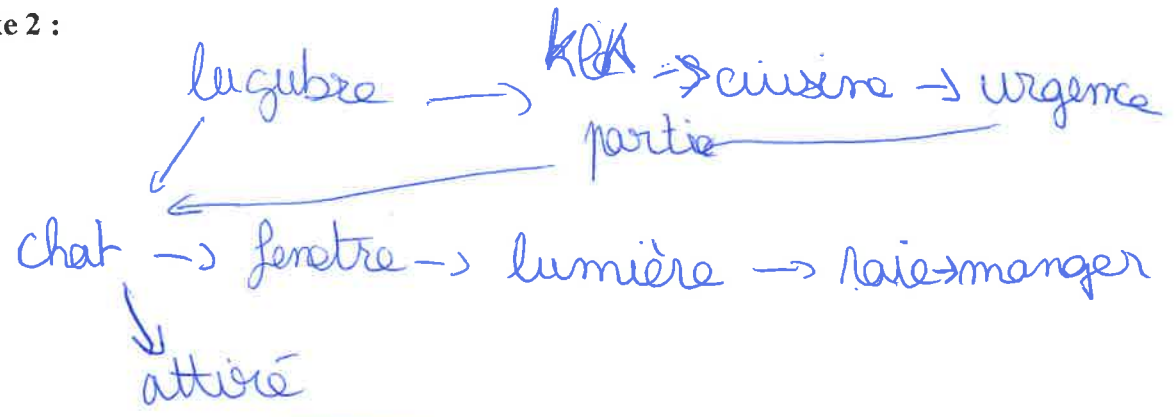 te 2 :
lugubre → → cuisine → urgence
partie
chat → fenetre → lumière → raie→manger
attiré